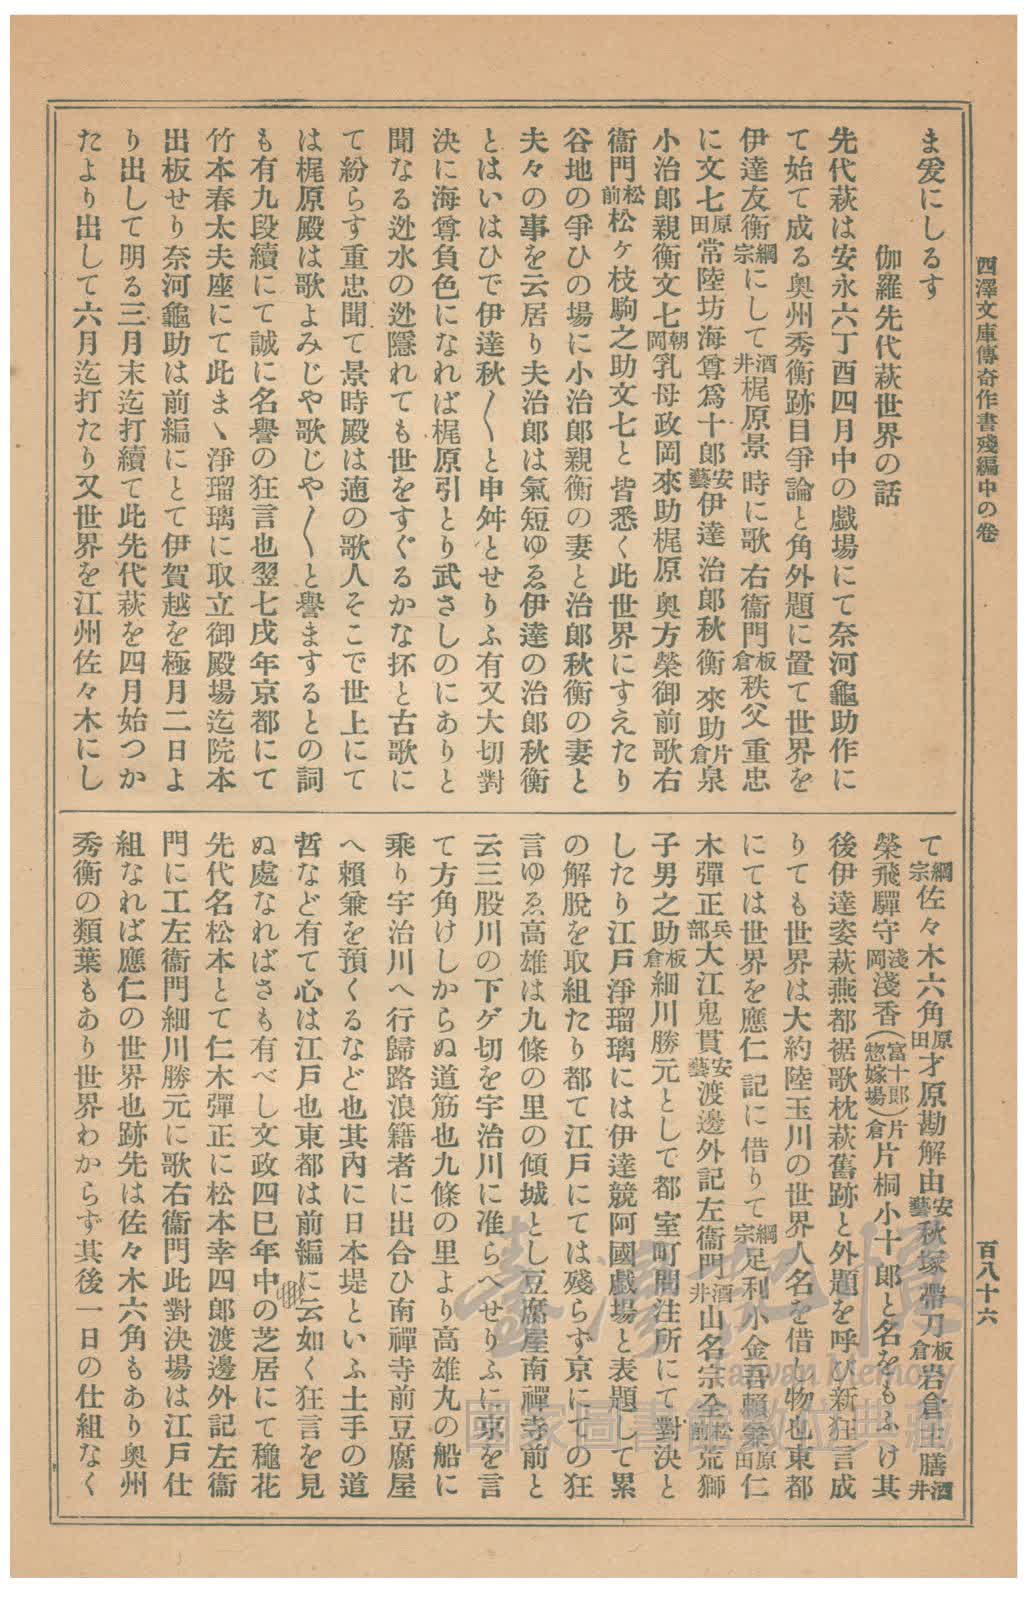 西澤文庫傳奇作書殘編中の卷
百八十六
ま爰にしるす
伽羅先代萩世界の話
先代萩は安永六丁酉四月中の戯場にて奈河龜助作に
て始て成る奥州秀衡跡目爭論と角外題に置て世界を
伊達友衡綱宗にして酒井梶原景時に歌右衞門板倉秩父重忠
に文七原田常陸坊海尊爲十郎安藝伊達治郎秋衡來助片倉泉
小治郎親衡文七朝岡乳母政岡來助梶原奥方榮御前歌右
衞門松前松ヶ枝駒之助文七と皆悉く此世界にすえたり
谷地の爭ひの場に小治郎親衡の妻と治郎秋衡の妻と
夫々の事を云居り夫治郎は氣短ゆゑ伊達の治郎秋衡
とはいはひで伊達秋〳〵と申舛とせりふ有又大切對
決に海尊負色になれば梶原引とり武さしのにありと
聞なる迯水の迯隱れても世をすぐるかな抔と古歌に
て紛らす重忠聞て景時殿は適の歌人そこで世上にて
は梶原殿は歌よみじや歌じや〳〵と譽まするとの詞
も有九段續にて誠に名譽の狂言也翌七戌年京都にて
竹本春太夫座にて此まヽ淨瑠璃に取立御殿場迄院本
出板せり奈河龜助は前編にとて伊賀越を極月二日よ
り出して明る三月末迄打續て此先代萩を四月始つか
たより出して六月迄打たり又世界を江州佐々木にし
て綱宗佐々木六角原田才原勘解由安藝秋塚帶刀板倉岩倉主膳酒井
榮飛驒守淺岡淺香(富十郎惣嫁場)片倉片桐小十郎と名をもふけ其
後伊達姿萩燕都裾歌枕萩舊跡と外題を呼び新狂言成
りても世界は大約陸玉川の世界人名を借し物也東都
にては世界を應仁記に借りて綱宗足利小金吾賴兼原田仁
木彈正兵部大江鬼貫安藝渡邊外記左衞門酒井山名宗全松前荒獅
子男之助板倉細川勝元として都室町問注所にて對決と
したり江戸淨瑠璃には伊達競阿國戯場と表題して累
の解脫を取組たり都て江戸にては殘らず京にての狂
言ゆゑ高雄は九條の里の傾城とし豆腐屋南禪寺前と
云三股川の下ゲ切を宇治川に准らへせりふに京を言
て方角けしからぬ道筋也九條の里より高雄丸の船に
乘り宇治川へ行歸路浪籍者に出合ひ南禪寺前豆腐屋
へ賴兼を預くるなど也其內に日本堤といふ土手の道
哲など有て心は江戸也東都は前編に云如く狂言を見
ぬ處なればさも有べし文政四巳年中の芝居にて穐花
先代名松本とて仁木彈正に松本幸四郎渡邊外記左衞
門に工左衞門細川勝元に歌右衞門此對決場は江戸仕
組なれば應仁の世界也跡先は佐々木六角もあり奥州
秀衡の類葉もあり世界わからず其後一日の仕組なく
臺灣記憶
Taiwan Memory
國家圖書館數位典藏